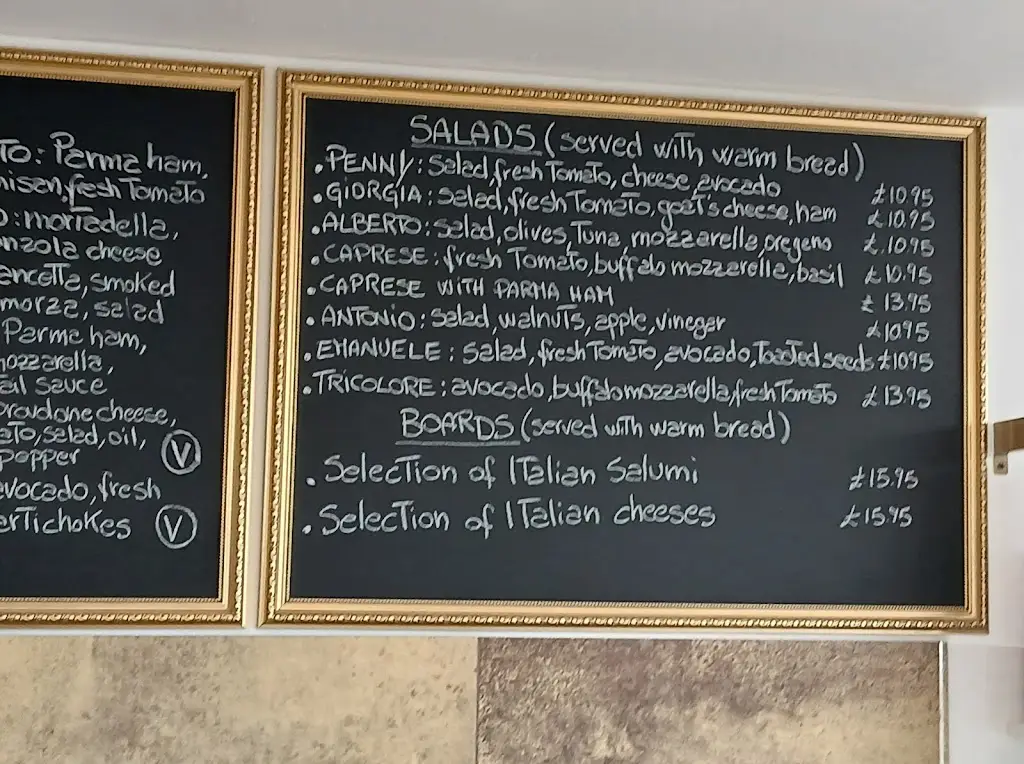 TO: Parma ham,
fresh Tomato
: mortadella,
cheese
smoked
salad
Parma ham,
sauce
cheese,
salad, oil,
pepper
V
avocado, fresh
arTichoKes V
SALADS (served with warm bread)
. PENNY: Salad, fresh Tomato, cheese, avocado £10.95
. GIORGIA: Salad, fresh Tomato, goat's cheese, ham £10.95
. ALBERTO: Salad, olives, Tuna, mozzarella, oregano £10.95
. CAPRESE: fresh Tomato, buffalo mozzarella, basil £10.95
. CAPRESE WITH PARMA HAM £13.95
. ANTONIO: Salad, walnuts, apple, vinegar £10.95
. EMANUELE: Salad, fresh Tomato, avocado, Toasted seeds £10.95
. TRICOLORE: avocado, buffalo mozzarella, fresh Tomato £13.95
BOARDS (served with warm bread)
. Selection of ITalian Salumi £15.95
. Selection of ITalian cheeses £15.95